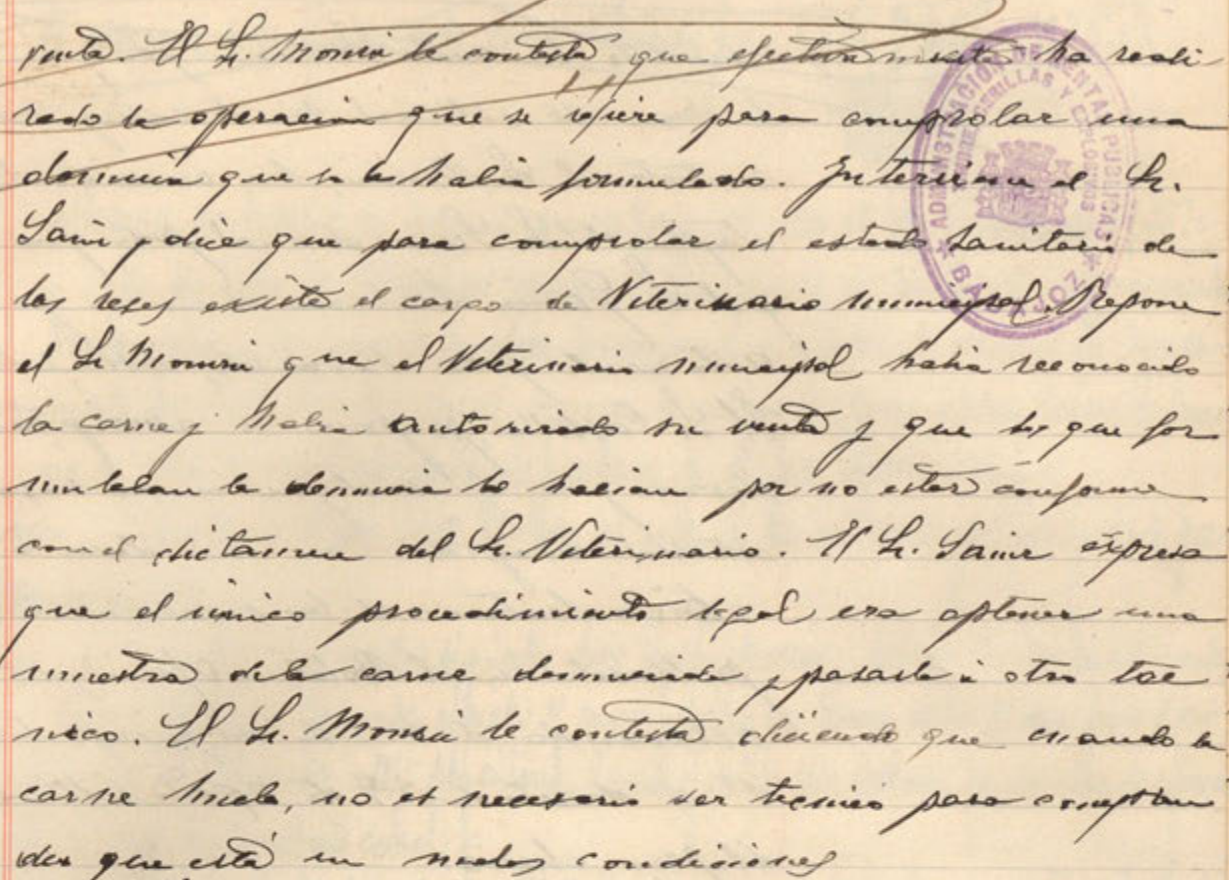 venta. El Sr. Monsiu le contesta que efectivamente ha reali-
zado la operacion que se refiere para comprobar una
denuncia que se le habia formulado. Interviene el Sr.
Sainz y dice que para comprobar el estado sanitario de
las reses existe el cargo de Veterinario municipal. Repone
el Sr Monsiu que el Veterinario municipal habia reconocido
la carne y habia autorizado su venta y que los que for
mulaban la denuncia lo hacian por no estar conforme
con el dictamen del Sr. Veterinario. El Sr. Sainz expresa
que el unico procedimiento legal era obtener una
muestra de la carne denunciada y pasarla a otro tec
nico. El Sr. Monsiu le contesta diciendo que cuando la
carne huele, no es necesario ser tecnico para compren
der que está en malas condiciones
ADMINISTRACION DE RENTAS PUBLICAS
CERILLAS Y EXPLOSIVOS
★ BADAJOZ ★